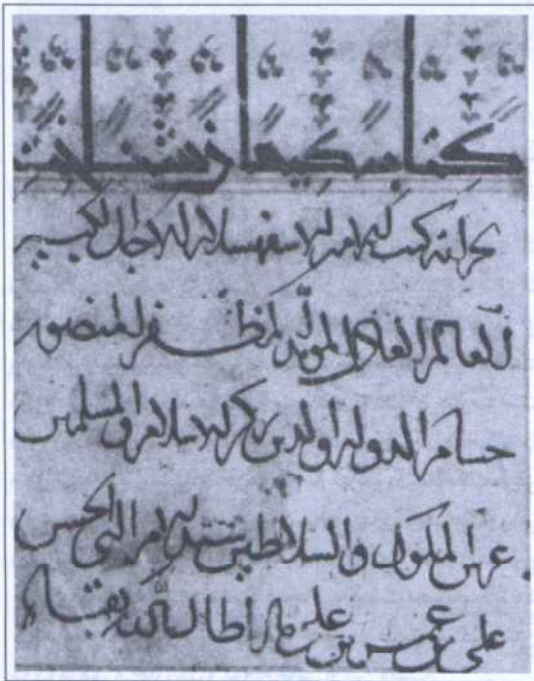 كتاب
بخزانة كتب الامير الاسفهسلار الاجل الكبير
العالم العادل المؤيد المظفر المنصور
حسام الدولة والدين ركن الاسلام والمسلمين
الملوك والسلاطين سيد الامرا ابي الحسن
علي بن عمر بن علي اطال الله بقاه